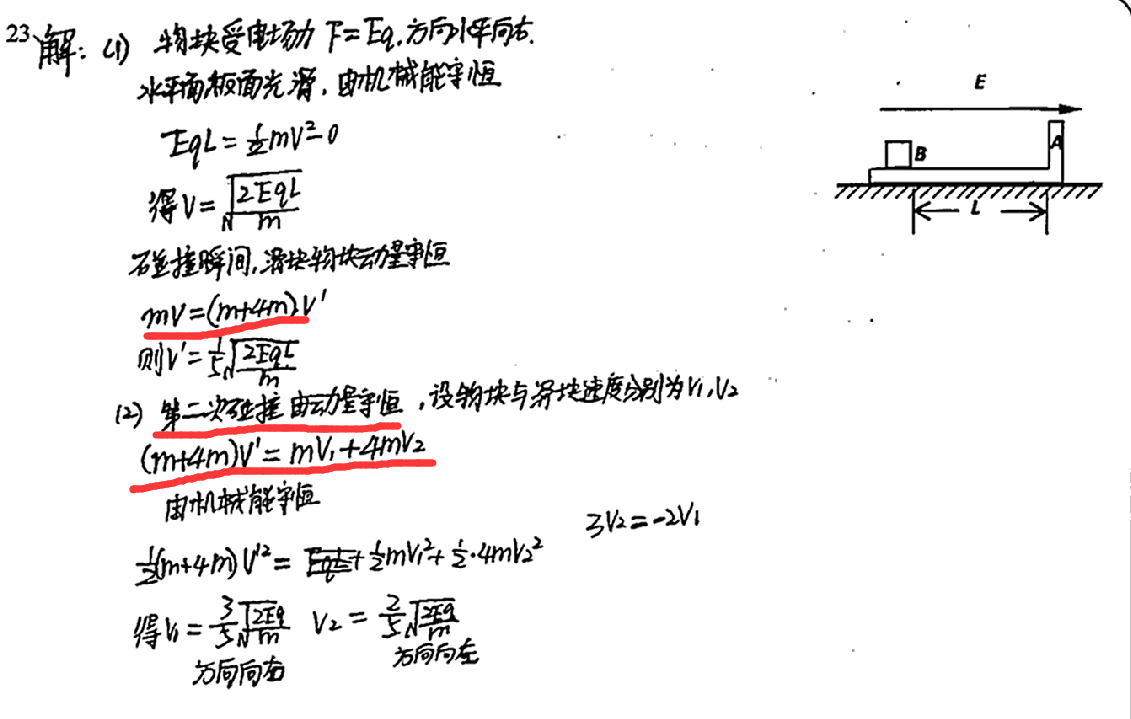 23 解：(1) 物块受电场力 F=Eq.方向水平向右.
水平面板面光滑，由机械能守恒
EqL=½mV²-0
得V=√(2EqL/m)
碰撞瞬间，滑块物块动量守恒
mV=(m+4m)V'
则V'=1/5√(2EqL/m)
(2) 第二次碰撞由动量守恒，设物块与滑块速度分别为V₁,V₂
(m+4m)V'=mV₁+4mV₂
由机械能守恒
3V₂=-2V₁
½(m+4m)V'²=½mV₁²+½·4mV₂²
得V₁=3/5√(2Eq/m) V₂=2/5√(2Eq/m)
方向向右 方向向左
E
B
A
L